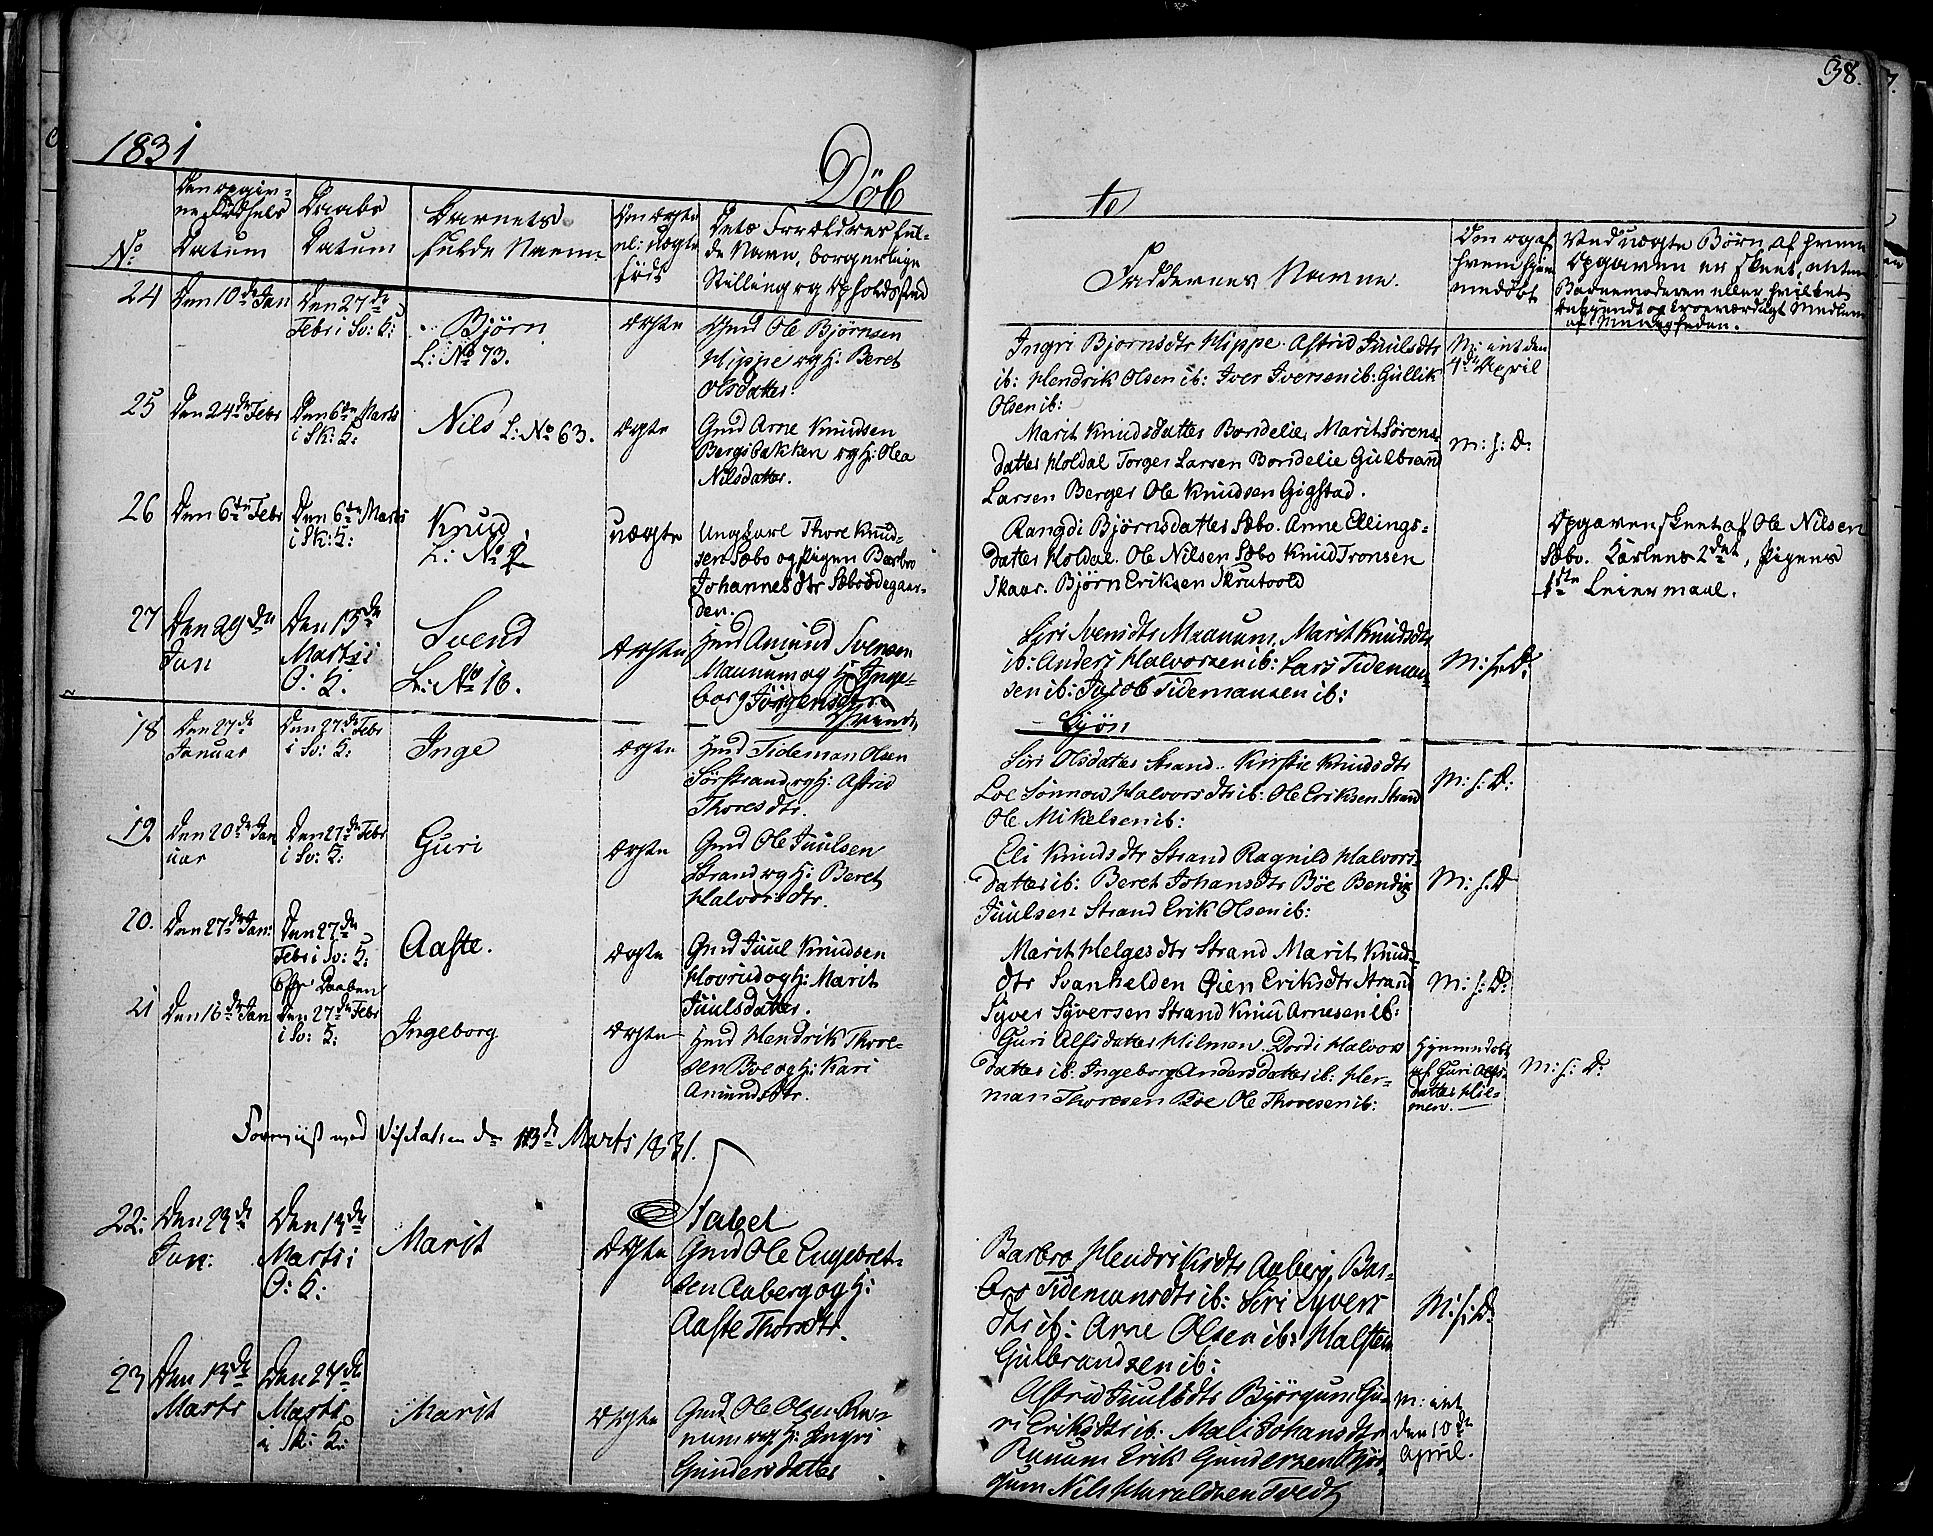 1831
Döb
te
38.
No
Den opgiv-
ne Födsels
Datum
Daabs
Datum
Barnets
fulde Navn
Om ægte
el: uægte
född
Dets Forældres ful-
de Navn, borgerlige
Stilling og Opholdssted
Faddernes Navne.
Om og af
hvem hjem
medöbt
Ved uægte Börn af hvem
Opgaven er skeet, enten
Barnemoderen eller hvilket
bekjendt og troeværdigt Medlem
af Menigheden.
24 Den 10de Jan
Den 27de
Febr i Sv: K:
Björn
L: No 73.
ægte
Gmd Ole Björnsen
Hippe og H: Beret
Olsdatter.
Ingri Bjornsdtr Hippe. Astrid Juulsdtr
ib: Hendrik Olsen ib: Iver Iversen ib: Gullik
Olsen ib:
M: int den
4de April
25 Den 24de Febr
Den 6te Marts
i Sk: K:
Nils L: No 63.
ægte
Gmd Arne Knudsen
Bergsbakken og H: Olea
Nilsdatter.
Marit Knudsdatter Bondelie, Marit Sörens
datter Holdal Torger Larsen Bondelie Gulbrand
Larsen Berger Ole Knudsen Gigstad.
M: s: D:
26 Den 6te Febr
Den 6te Marts
i Sk: K:
Knud
L: No
uægte
Ungkarl Thore Knud-
sen Sæbo og Pigen Barbro
Johannesdtr Sæbroödegaar-
den.
Rangdi Björnsdatter Sæbo. Anne Ellings-
datter Holdal. Ole Nilsen Sæbo Knud Tronsen
Skaar. Björn Eriksen Skrutvold
Opgaven skeet af Ole Nilsen
Sæbo. Karlens 2det, Pigens
1ste Leiermaal.
27 Den 29de
Jan
Den 13de
Marts i
O: K.
Svend
L: No 16.
Ægte
Hmd Amund Svensen
Maanum og H: Inge-
borg Jörgensdtr.
Siri Svensdtr Maanum, Marit Knudsdtr
ib: Anders Halvorsen ib: Lars Tideman-
sen ib: Jacob Tidemansen ib:
M: s: D:
18 Den 27de
Januar
Den 27de Febr
i Sv: K:
Inge
ægte
Hmd Tideman Olsen
Sörstrand og H: Astrid
Thoresdtr.
Siri Olsdatter Strand. Kirstie Knudsdtr
Loe Sönnow Halvorsdtr ib: Ole Eriksen Strand
Ole Mikelsen ib:
M: s: D:
19 Den 20de Jan
uar
Den 27de Febr
i Sv: K:
Guri
ægte
Gmd Ole Juulsen
Strand og H: Beret
Halvorsdtr.
Eli Knudsdtr Strand Ragnild Halvors-
datter ib: Beret Johansdtr Böe Bendix
Juulsen Strand Erik Olsen ib:
M: s: D
20. Den 27de Jan:
Den 27de
Febr i Sv: K:
Aaste.
ægte
Gmd Juul Knudsen
Hovrud og H: Marit
Juulsdatter.
Marit Helgesdtr Strand Marit Knuds-
dtr Svanhelden Öien Eriksdtr Strand
Syver Syversen Strand Knud Arnesen ib:
M: s: D:
21 Den 16de Jan
Den 27de Febr
i Sv: K:
Ingeborg
ægte
Hmd Hendrik Thore-
sen Böe og H: Kari
Amundsdtr.
Guri Alfsdatter Hilmen. Dordi Halvors
datter ib: Ingeborg Andersdatter ib: Her-
man Thoresen Böe Ole Thoresen ib:
Hjemmedöbt
af Guri Alfs-
datter Hil-
men.
M: s: D:
Foreviist ved Visitatsen d 13de Marts 1831.
22: Den 23de
Jan:
Den 13de
Marts i
O: K:
Marit
Ægte
Gmd Ole Engebret-
sen Aaberg og H:
Aaste Thorsdtr.
Barbro Hendriksdtr Aaberg, Bar-
bro Tidemansdtr ib: Siri Syvers
dtr ib: Arne Olsen ib: Halsten
Gulbrandsen ib:
M: s: D:
23 Den 13de
Marts
Den 27de
Marts
i Sk: K:
Marit
Ægte
Gmd Ole Olsen Ra-
num og H: Ingri
Gundersdatter
Astrid Juulsdtr Björgum, Gu-
ri Eriksdtr ib: Mali Johansdtr
Ranum Erik Gundersen Björ-
gum Nils Haraldsen Tvedt
M: int
den 10de
April.